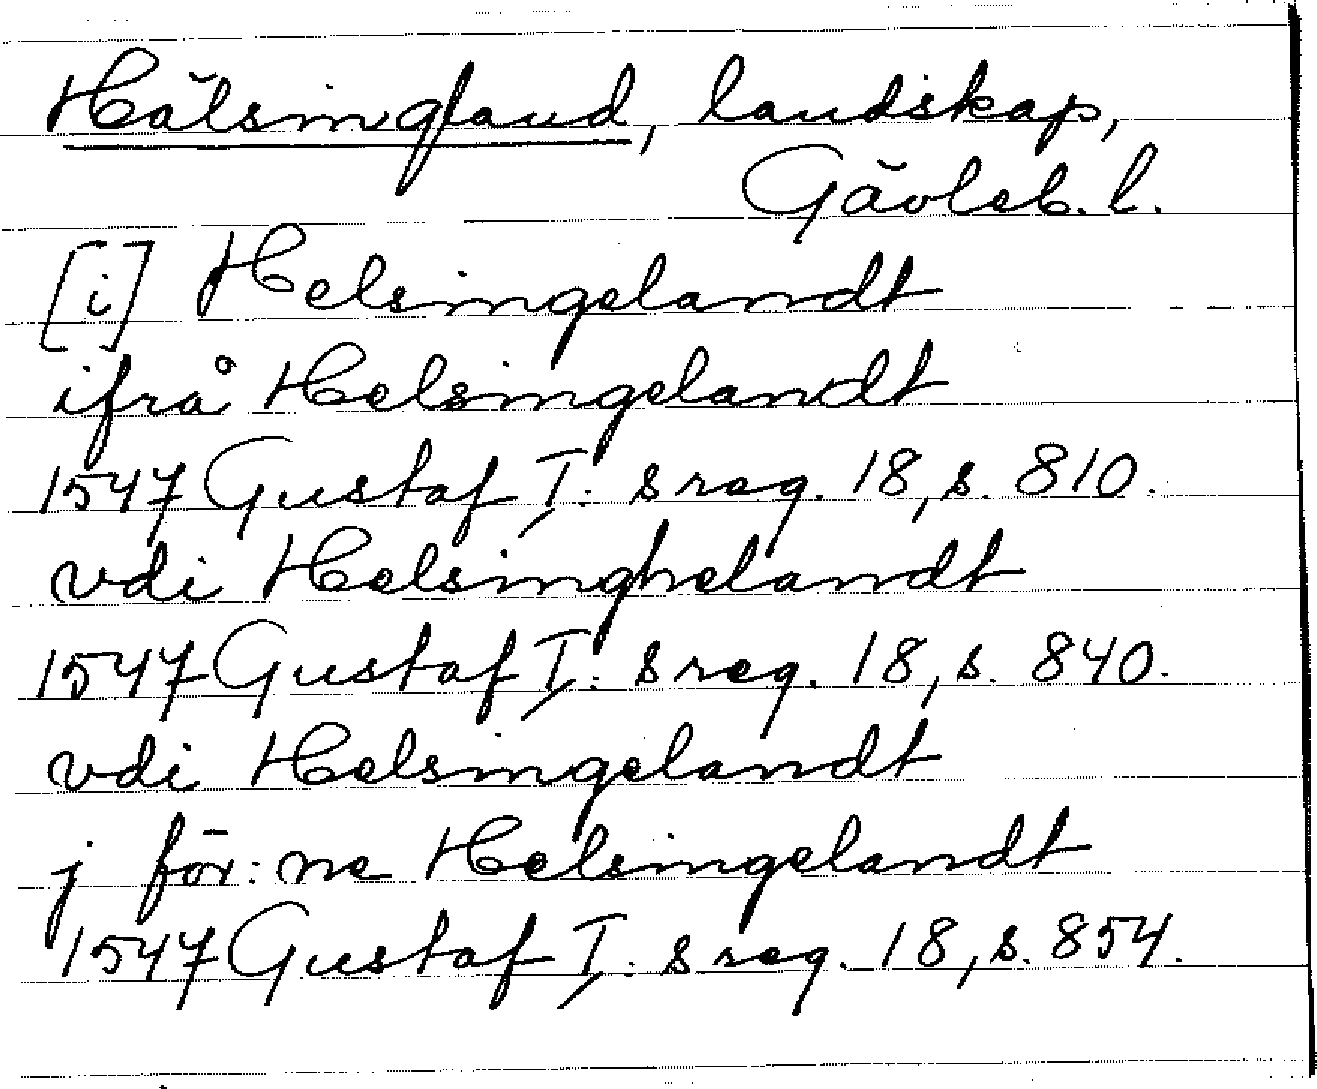 Hälsingland, landskap,
Gävleb. l.
[i] Helsingelandt
ifrå Helsingelandt
1547 Gustaf I: s reg. 18, s. 810.
vdi Helsinghelandt
1547 Gustaf I: s reg. 18, s. 840.
vdi Helsingelandt
j för: ne Helsingelandt
1547 Gustaf I: s reg. 18, s. 854.